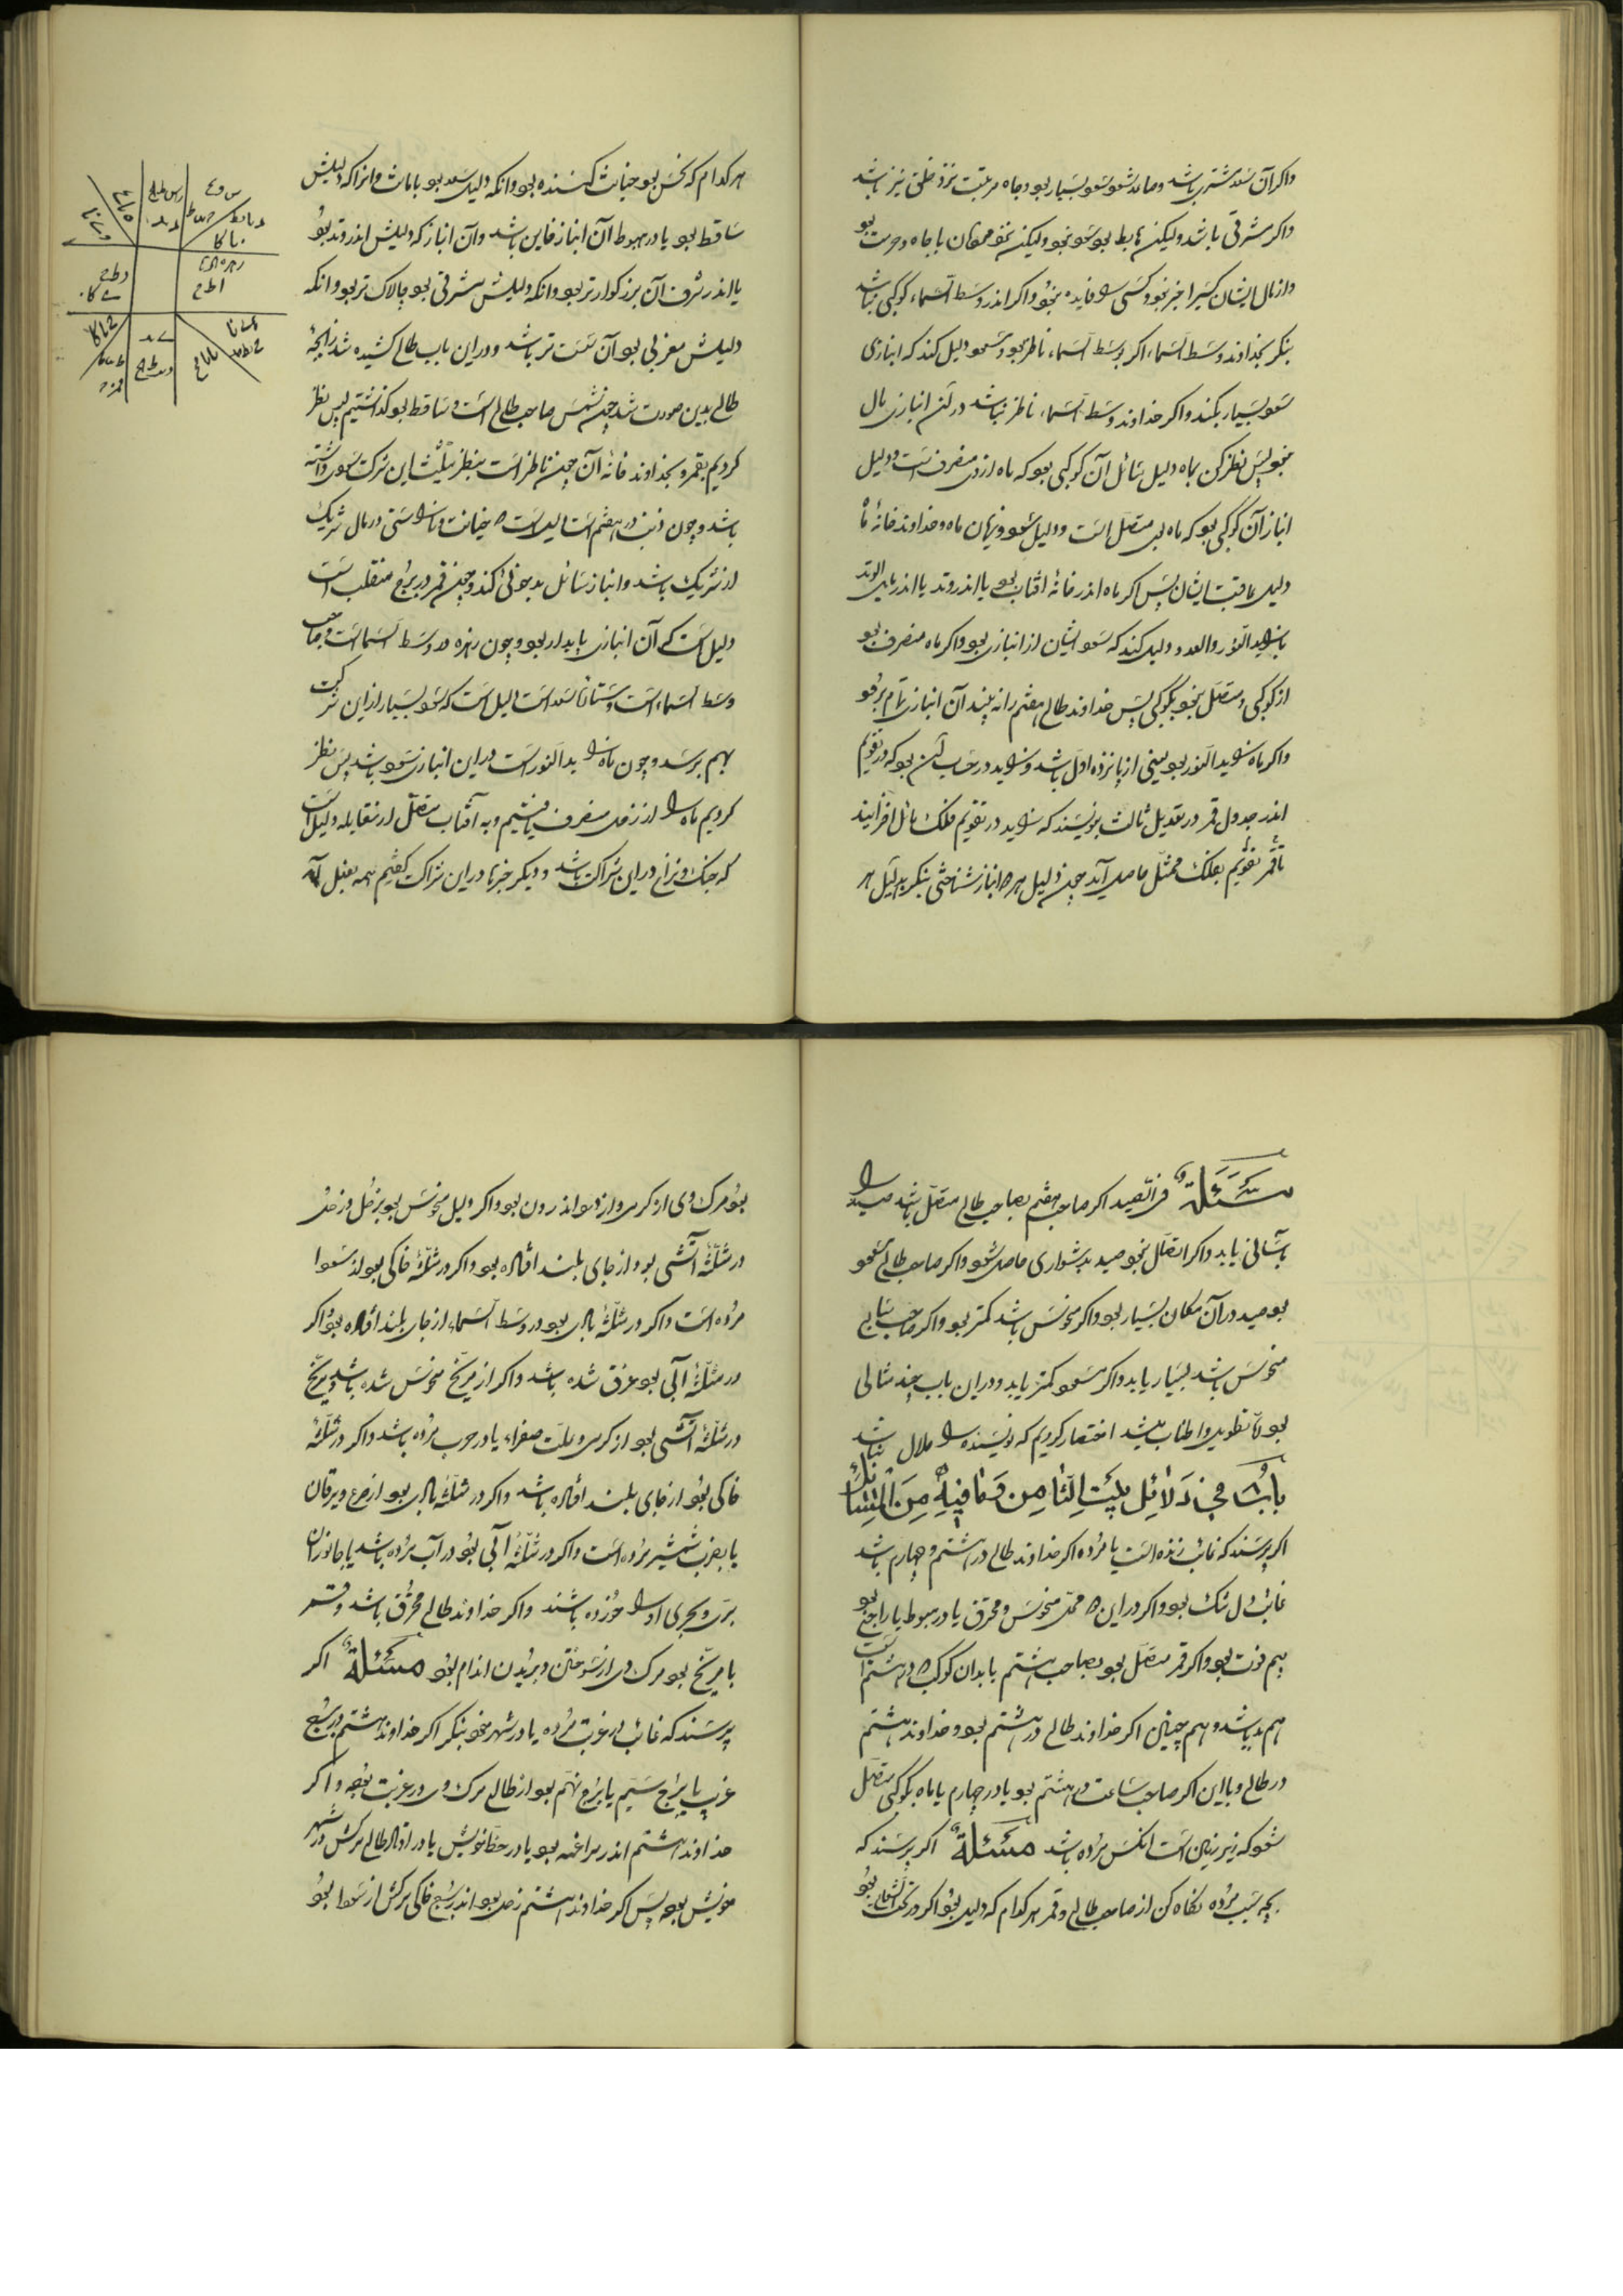 واکر آن سعد مشتری باشد و صاعد شود سود بسیار بود و جاه و مرتبت نزد خلق نیز باشد
واکر مشرقی باشد ولیکن هابط بود سود نبود ولیکن با جاه و حرمت بود
واز مال ایشان کسی را خبر نبود و کسی را فایده نبود واکر اندر وسط السماء کوکبی نباشد
بنکر بخداوند وسط السماء اکر بوسط السماء ناظر بود و مسعود دلیل کند که انبازی
سود بسیار بکند واکر خداوند وسط السماء ناظر نباشد در آن انبازی مال
نبود پس نظر کن بماه دلیل سائل آن کوکبی بود که ماه از وی منصرف است و دلیل
انباز آن کوکبی بود که ماه بوی متصل است و دلیل سود و زیان ماه و خداوند خانهٔ ماه
دلیل عاقبت ایشان پس اکر ماه اندر خانهٔ آفتاب بود یا اندر وتد یا اندر مایل الوتد
یا زاید النور والعدد دلیل کند که سود ایشان از انبازی بود واکر ماه منصرف بود
از کوکبی و متصل نبود بکوکبی پس خداوند طالع هفتم را نه بیند آن انبازی تمام نرود
واکر ماه زاید النور بود یعنی از پانزده اول باشد و زاید در حساب آن بود که در تقویم
اندر جدول قمر در تعدیل ثالث بنویسند که زاید در تقویم فلک مائل افزایند
تا قمر تقویم بفلک ممثل حاصل آید چون دلیل هر دو انباز شناختی بنکر بدلیل هر
هرکدام که نحس بود خیانت کننده بود وانکه دلیل سعد بود با امانت وانرا که دلیلش
ساقط بود یا در هبوط آن انباز خاین باشد وآن انباز که دلیلش اندر وتد بود
یا اندر شرف آن بزرکوارتر بود وانکه دلیلش مشرقی بود چالاک تر بود وانکه
دلیلش مغربی بود آن سست تر باشد و در این باب طالع کشیده شد زایجهٔ
طالع بدین صورت شد چون شمس صاحب طالع است و ساقط بود کذاشتیم پس نظر
کردیم بقمر و بخداوند خانهٔ آن چون ناظر است بنظر تثلیث این شرکت سود داشته
باشد و چون ذنب در هفتم است دلیل است بر خیانت و ناراستی در مال شریک
از شریک باشد وانباز سائل بد خوئی کند و چون قمر در برج منقلب است
دلیل است که آن انبازی پایدار بود و چون زهره در وسط السما است و صاحب
وسط السماء است و ستاره سعد است دلیل است که سود بسیار از این شرکت
بهم برسد و چون ماه زاید النور است در این انبازی سود باشد پس نظر
کردیم ماه را از زحل منصرف یافتیم و به آفتاب متصل از مقابله دلیل است
که جنک و نزاع در این شراکت باشد و دیکر خبرها در این شراکت کفتیم همه بفعل آمد
مسئلة فی الصید اکر صاحب هفتم بصاحب طالع متصل باشد صید را
بآسانی یابد واکر اتصال نبود صید بدشواری حاصل شود واکر صاحب طالع مسعود
بود صید در آن مکان بسیار بود واکر منحوس باشد کمتر بود واکر صاحب سابع
منحوس باشد بسیار یابد واکر مسعود کمتر یابد و در این باب چند مثالی
بود تا تطویل و اطناب نباشد اختصار کردیم که نویسنده را ملال نباشد
بابٌ فی دَلائِل بیت الثامن وَمافیه مِن المسائل
اکر پرسند که غائب زنده است یا مرده اکر خداوند طالع در هشتم و چهارم باشد
غائب را شک بود واکر در این دو محل منحوس و محترق یا در هبوط یا راجع بود
بیم فوت بود واکر قمر متصل بود بصاحب هشتم یا بدان کوکب که در هشتم است
هم بد باشد و هم چنین اکر خداوند طالع در هشتم بود و خداوند هشتم
در طالع و با این اکر صاحب ساعت در هشتم بود یا در چهارم یا ماه بکوکبی متصل
شود که زیر زمین است انکس مرده باشد مسئلة اکر پرسند که
بچه سبب مرده نکاه کن از صاحب طالع و قمر هرکدام که دلیل بود اکر در تحت الشعاع بود
بود مرک وی از کرمی و از درد اندرون بود واکر دلیل منحوس بود بزحل و زحل
در مثلثهٔ آتشی بود از جای بلند افتاده بود واکر در مثلثهٔ خاکی بود از سودا
مرده است واکر در مثلثهٔ بادی بود در وسط السماء از جای بلند افتاده بود واکر
در مثلثهٔ آبی بود غرق شده باشد واکر از مریخ منحوس شده باشد و مریخ
در مثلثهٔ آتشی بود از کرمی و علت صفراء یا در حرب مرده باشد واکر در مثلثهٔ
خاکی بود از جای بلند افتاده باشد واکر در مثلثهٔ بادی بود از صرع و یرقان
یا بضرب شمشیر مرده است واکر در مثلثهٔ آبی بود در آب مرده باشد یا جانوران
بری و بحری او را خورده باشند واکر خداوند طالع محترق باشد و قمر
با مریخ بود مرک وی از سوختن و بریدن اندام بود مسئلة اکر
پرسند که غائب در غربت مرده یا در شهر خود بنکر اکر خداوند هشتم در ربع
غربی یا برج سیم یا برج نهم بود از طالع مرک وی در غربت بود واکر
خداوند هشتم اندر مراغمه بود یا در حظ خویش یا در اوتاد طالع مرکش در شهر
خویش بود پس اکر خداوند هشتم زحل بود اندر ربع خاکی مرکش از سودا بود